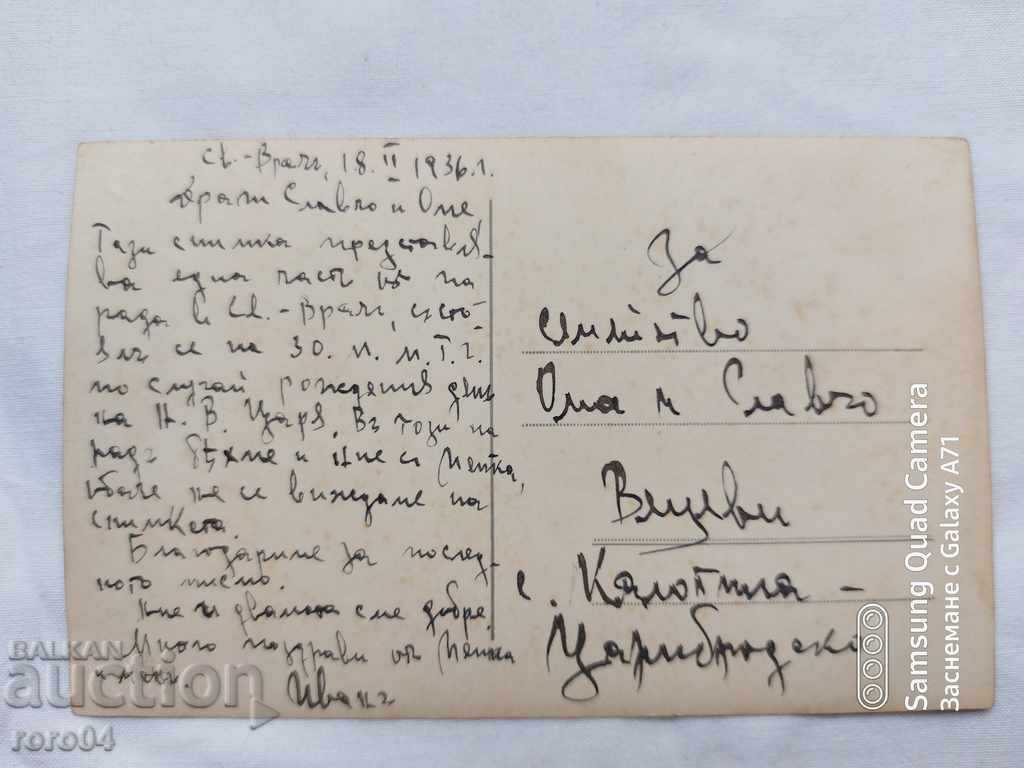 Св.-Врачъ, 18. II 1936 г.
Драги Славчо и Оле,
Тази снимка представя-
ва една часть отъ па
рада в Св.-Врачъ, състо
ялъ се на 30. п. м. т. г.
по случай рождения день
на Н. В. Царя. Въ този па
радъ бѣхме и ние съ Пенка,
обаче не се виждаме на
снимката.
Благодариме за послед
ното писмо.
Ние и двамата сме добре.
Много поздрави отъ Пенка
и мене. Иванъ
За
семейство
Олга и Славчо
Вецеви
с. Калотина -
Царибродско
BALKAN
auction
roro04
Samsung Quad Camera
Заснемане с Galaxy A71